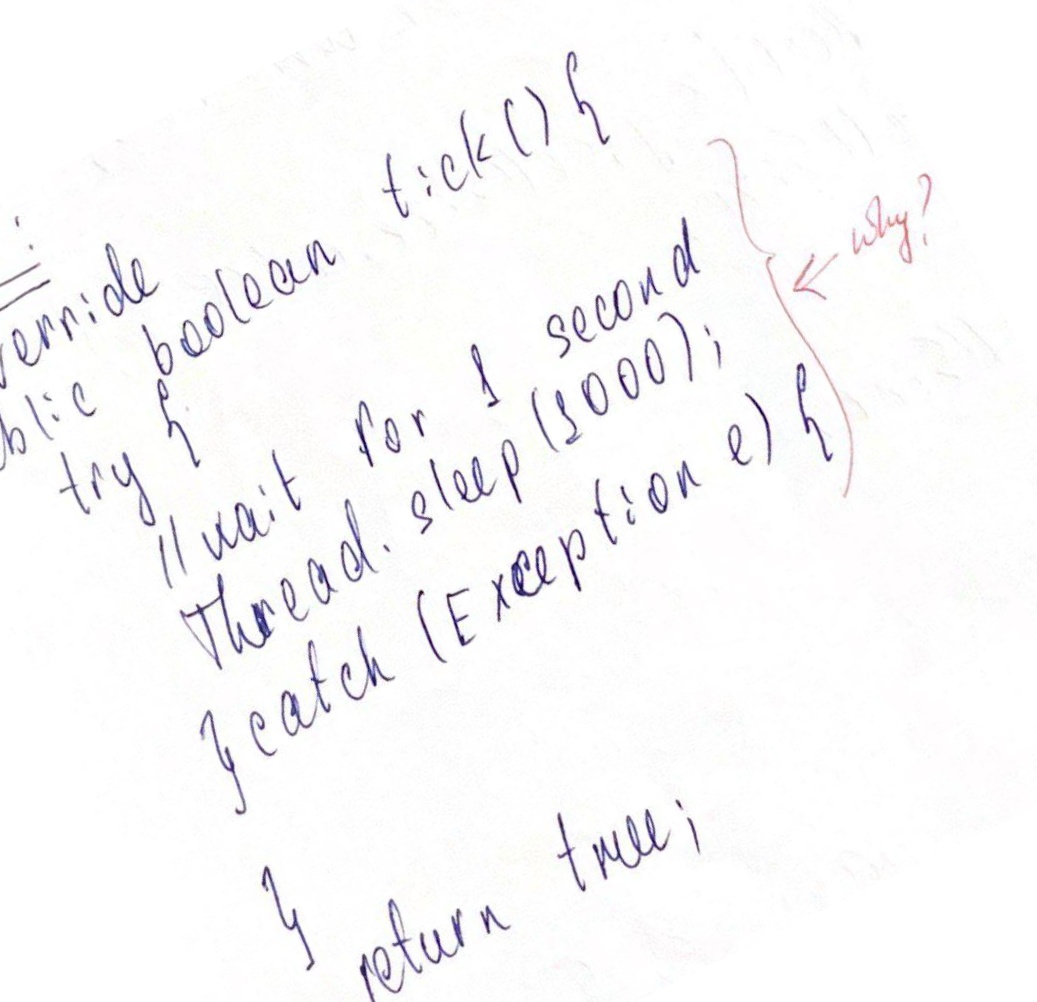 :
verride
blic boolean tick() {
try {
//wait for 1 second
Thread.sleep(1000);
} catch (Exception e) {
}
return true;
why?